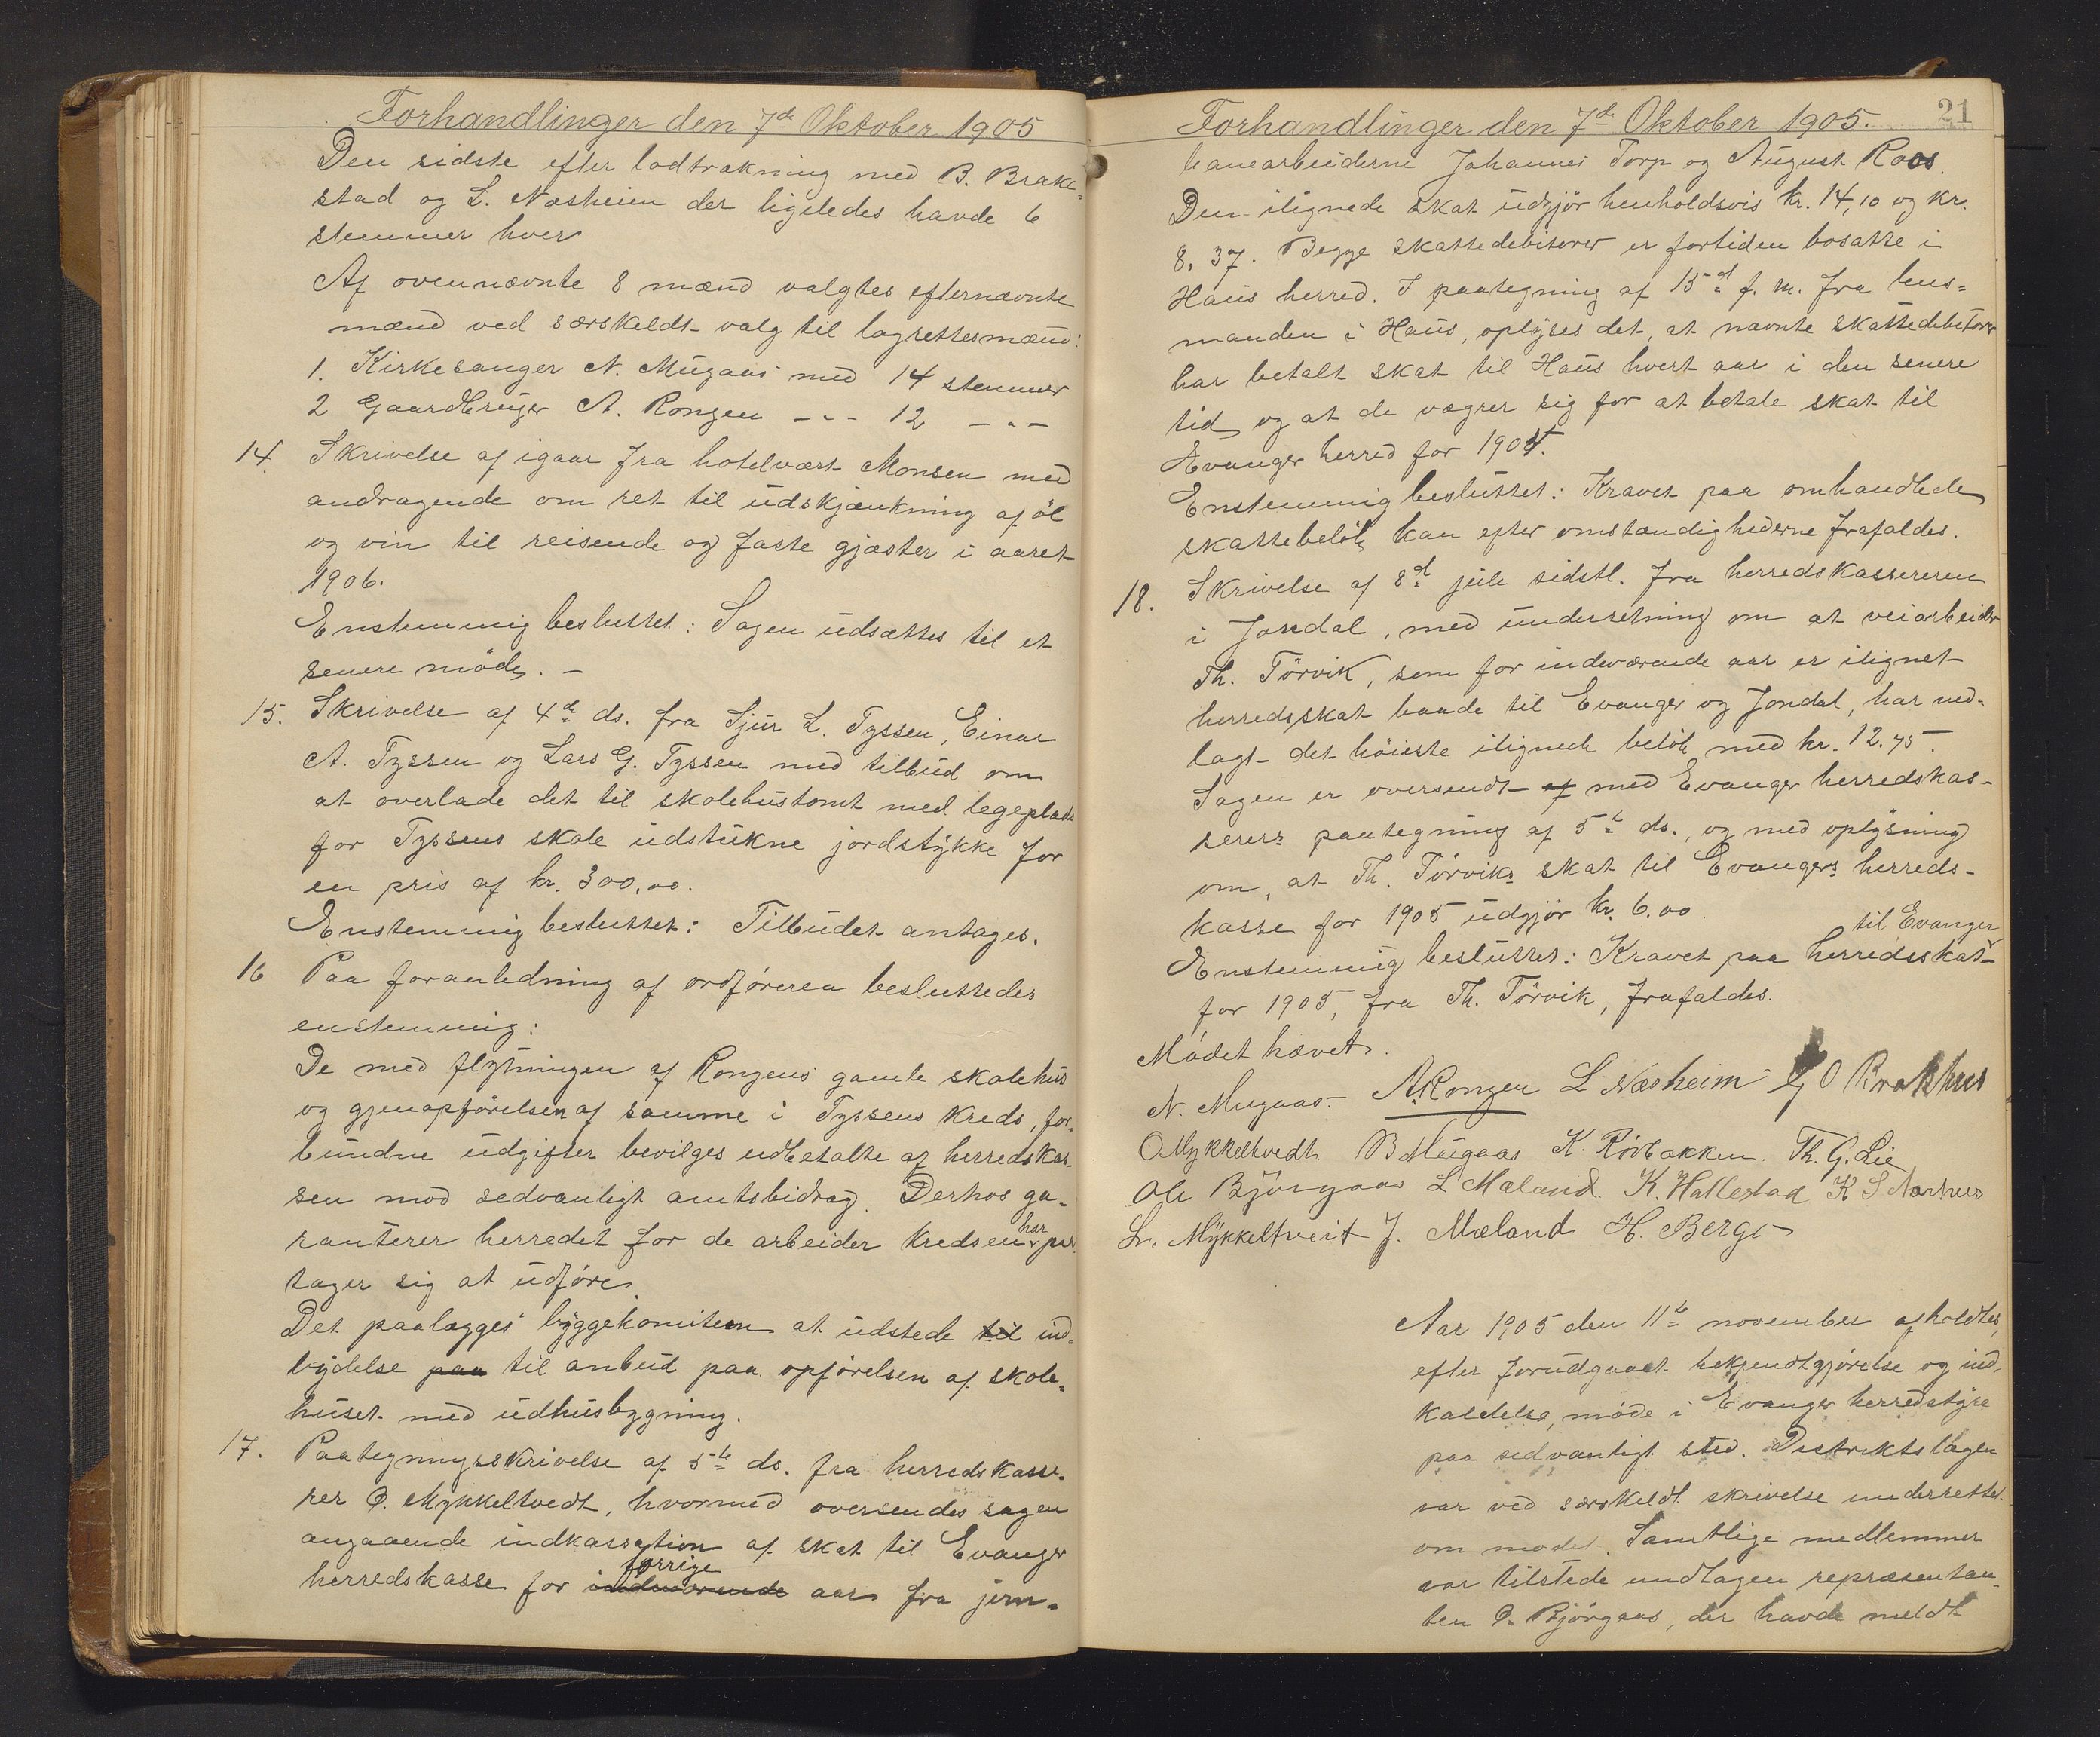 Forhandlinger den 7de Oktober 1905
Den sidste efter lodtrækning med B. Brake-
stad og L. Næsheim der ligeledes havde 6
stemmer hver
Af ovennævnte 8 mænd valgtes efternævnte
mænd ved særskeldt valg til lagrettesmænd:
1. Kirkesanger N. Mugaas med 14 stemmer
2 Gaardbruger A. Rongen - - - 12 - " -
14. Skrivelse af igaar fra hotelvært Monsen med
andragende om ret til udskjænkning af öl
og vin til reisende og faste gjæster i aaret
1906.
Enstemmig besluttet: Sagen udsættes til et
senere möde. -
15. Skrivelse af 4de ds. fra Sjur L. Tyssen, Einar
A. Tyssen og Lars G. Tyssen med tilbud om
at overlade det til skolehustomt med legeplads
for Tyssens skole udstukne jordstykke for
en pris af kr. 300,00.
Enstemmig besluttet: Tilbudet antages.
16 Paa foranledning af ordföreren besluttedes
enstemmig:
De med flytningen af Rongens gamle skolehus
og gjenopförelsen af samme i Tyssens kreds, for-
bundne udgifter bevilges udbetalte af herredskas-
sen mod sedvanligt amtsbidrag. Derhos ga-
ranterer herredet for de arbeider kredsen har paa
tager sig at udföre
Det paalægges byggekomiteen at udstede til ind-
bydelse paa til anbud paa opförelsen af skole-
huset med udhusbygning.
17. Paategningsskrivelse af 5te ds. fra herredskasse-
rer O. Mykkeltvedt, hvormed oversendes sagen
angaaende indkassation af skat til Evanger
herredskasse for indeværende forrige aar fra jern-
21
Forhandlinger den 7de Oktober 1905.
banearbeiderne Johannes Torp og August Roos.
Den ilignede skat udgjör henholdsvis kr. 14,10 og kr.
8,37. Begge skattedebitorer er fortiden bosatte i
Haus herred. I paategning af 15d f. m. fra lens=
manden i Haus, oplyses det, at nævnte skattedebitorer
har betalt skat til Haus hvert aar i den senere
tid og at de vægrer sig for at betale skat til
Evanger herred for 1904.
Enstemmig besluttet: Kravet paa omhandlede
skattebelöb kan efter omstændighederne frafaldes.
18. Skrivelse af 8d juli sidstl. fra herredskassereren
i Jondal, med underretning om at veiarbeider
Th. Törvik, som for indeværende aar er ilignet
herredsskat baade til Evanger og Jondal, har ned-
lagt det höieste ilignede belöb med kr. 12.75.
Sagen er oversendt af med Evanger herredskas-
serers paategning af 5te ds., og med oplysning
om, at Th. Törviks skat til Evangers herreds-
kasse for 1905 udgjör kr. 6.00
Enstemmig besluttet: Kravet paa herredsskat til Evanger
for 1905, fra Th. Törvik, frafaldes.
Mödet hævet.
N. Mugaas. A. Rongen L Næsheim G O Brakhus
O Mykkeltvedt B Mugaas K. Rörbakken. Th. G. Lie
Ole Björgaas L Mæland. K. Hallestad K S Aarhus
L. Mykkeltveit J. Mæland H. Berge
Aar 1905 den 11te november afholdtes,
efter forudgaaet bekjendtgjörelse og ind-
kaldelse, möde i Evanger herredstyre
paa sedvanligt sted. Distriktslægen
var ved særskeldt skrivelse underrettet
om mödet. Samtlige medlemmer
var tilstede undtagen repræsentan-
ten O. Björgaas, der havde meldt